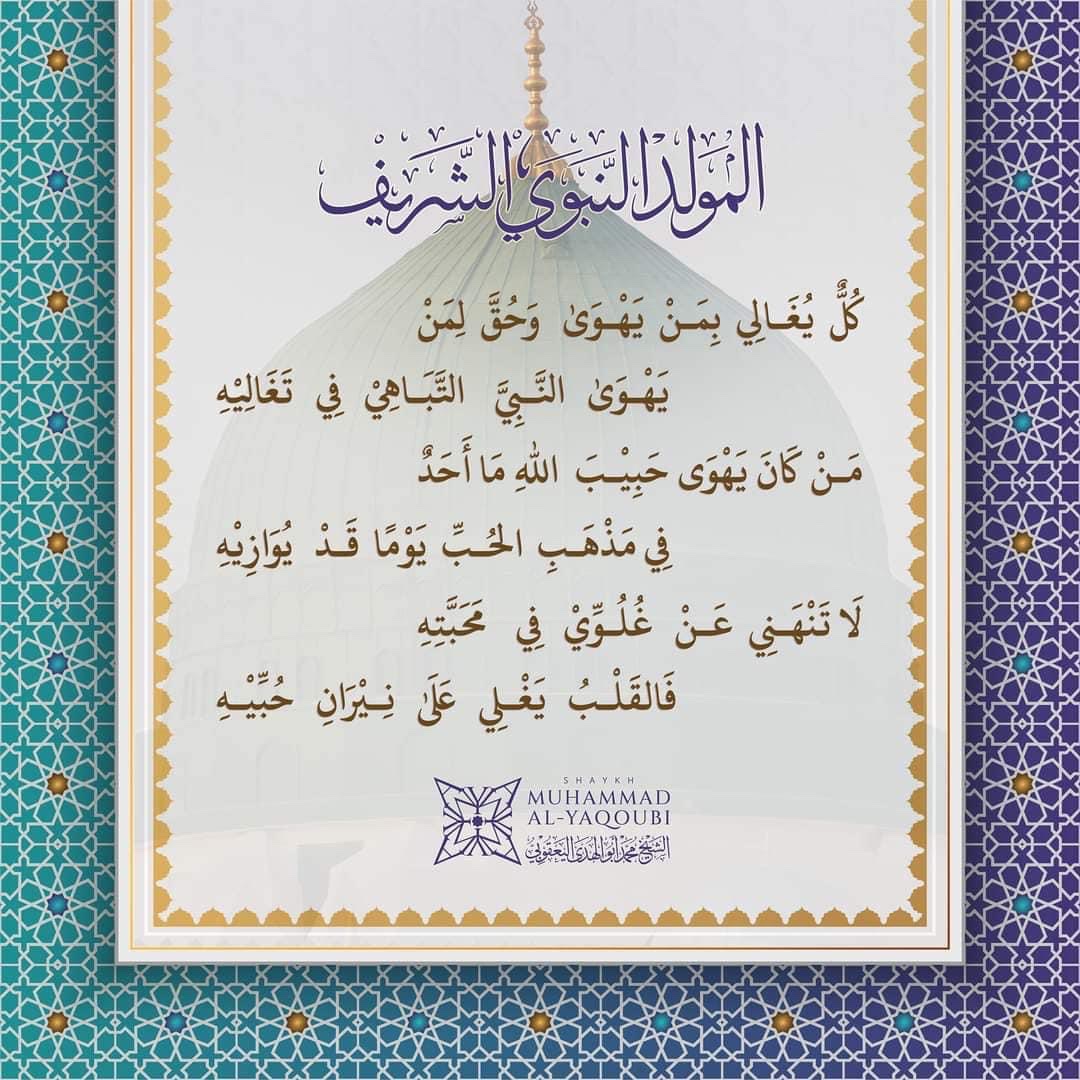 المَوْلِدُ النَّبَوِيُّ الشَّرِيفُ
كُلٌّ يُغَالِي بِمَنْ يَهْوَىٰ وَحُقَّ لِمَنْ
يَهْوَىٰ النَّبِيَّ التَّبَاهِيْ فِي تَغَالِيْهِ
مَنْ كَانَ يَهْوَى حَبِيْبَ اللهِ مَا أَحَدٌ
فِي مَذْهَبِ الحُبِّ يَوْمًا قَدْ يُوَازِيْهِ
لَا تَنْهَنِي عَنْ غُلُوِّيْ فِي مَحَبَّتِهِ
فَالقَلْبُ يَغْلِي عَلَىٰ نِيْرَانِ حُبِّيْهِ
SHAYKH
MUHAMMAD
AL-YAQOUBI
الشيخ محمد أبو الهدى اليعقوبي